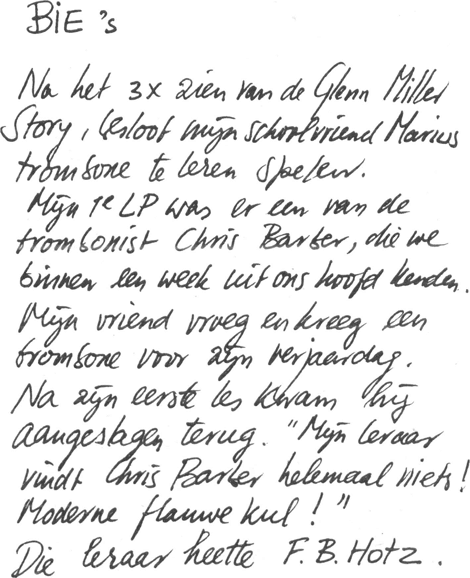 BIE's
Na het 3x zien van de Glenn Miller
Story, besloot mijn schoolvriend Marius
trombone te leren spelen.
Mijn 1e LP was er een van de
trombonist Chris Barber, die we
binnen een week uit ons hoofd kenden.
Mijn vriend vroeg en kreeg een
trombone voor zijn verjaardag.
Na zijn eerste les kwam hij
aangeslagen terug. "Mijn leraar
vindt Chris Barber helemaal niets!
Moderne flauwe kul!"
Die leraar heette F.B. Hotz.